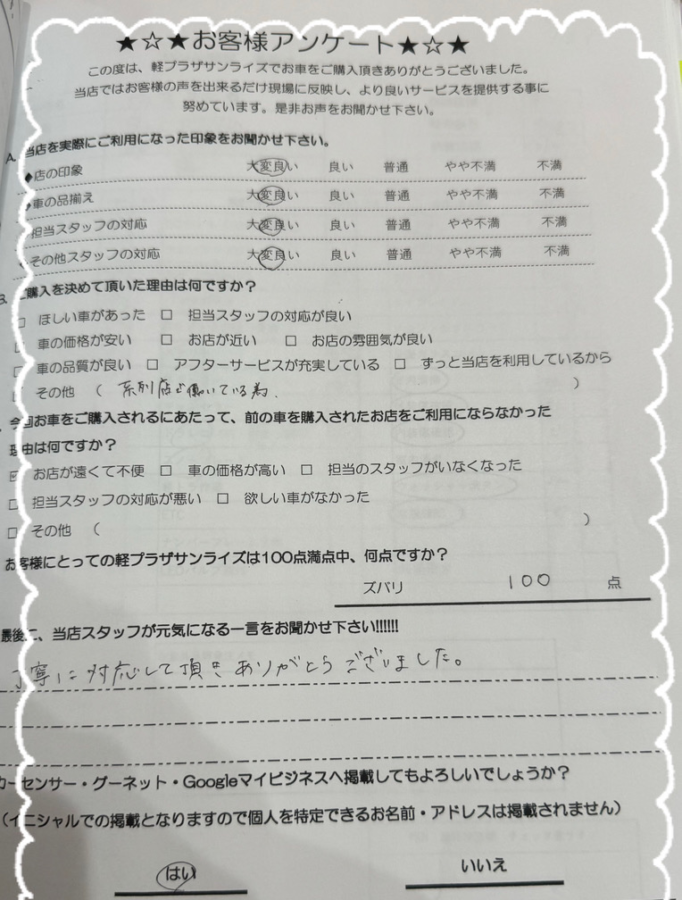 ★☆★お客様アンケート★☆★
この度は、軽プラザサンライズでお車をご購入頂きありがとうございました。
当店ではお客様の声を出来るだけ現場に反映し、より良いサービスを提供する事に
努めています。是非お声をお聞かせ下さい。
A. 当店を実際にご利用になった印象をお聞かせ下さい。
◆店の印象 大変良い 良い 普通 やや不満 不満
車の品揃え 大変良い 良い 普通 やや不満 不満
担当スタッフの対応 大変良い 良い 普通 やや不満 不満
その他スタッフの対応 大変良い 良い 普通 やや不満 不満
ご購入を決めて頂いた理由は何ですか？
□ ほしい車があった □ 担当スタッフの対応が良い
車の価格が安い □ お店が近い □ お店の雰囲気が良い
□ 車の品質が良い □ アフターサービスが充実している □ ずっと当店を利用しているから
その他 （ 系列店で働いている為. ）
今回お車をご購入されるにあたって、前の車を購入されたお店をご利用にならなかった
理由は何ですか？
お店が遠くて不便 □ 車の価格が高い □ 担当のスタッフがいなくなった
□ 担当スタッフの対応が悪い □ 欲しい車がなかった
□ その他 （ ）
お客様にとっての軽プラザサンライズは100点満点中、何点ですか？
ズバリ 100 点
最後に、当店スタッフが元気になる一言をお聞かせ下さい!!!!!!
丁寧に対応して頂きありがとうございました。
カーセンサー・グーネット・Googleマイビジネスへ掲載してもよろしいでしょうか？
（イニシャルでの掲載となりますので個人を特定できるお名前・アドレスは掲載されません）
はい いいえ